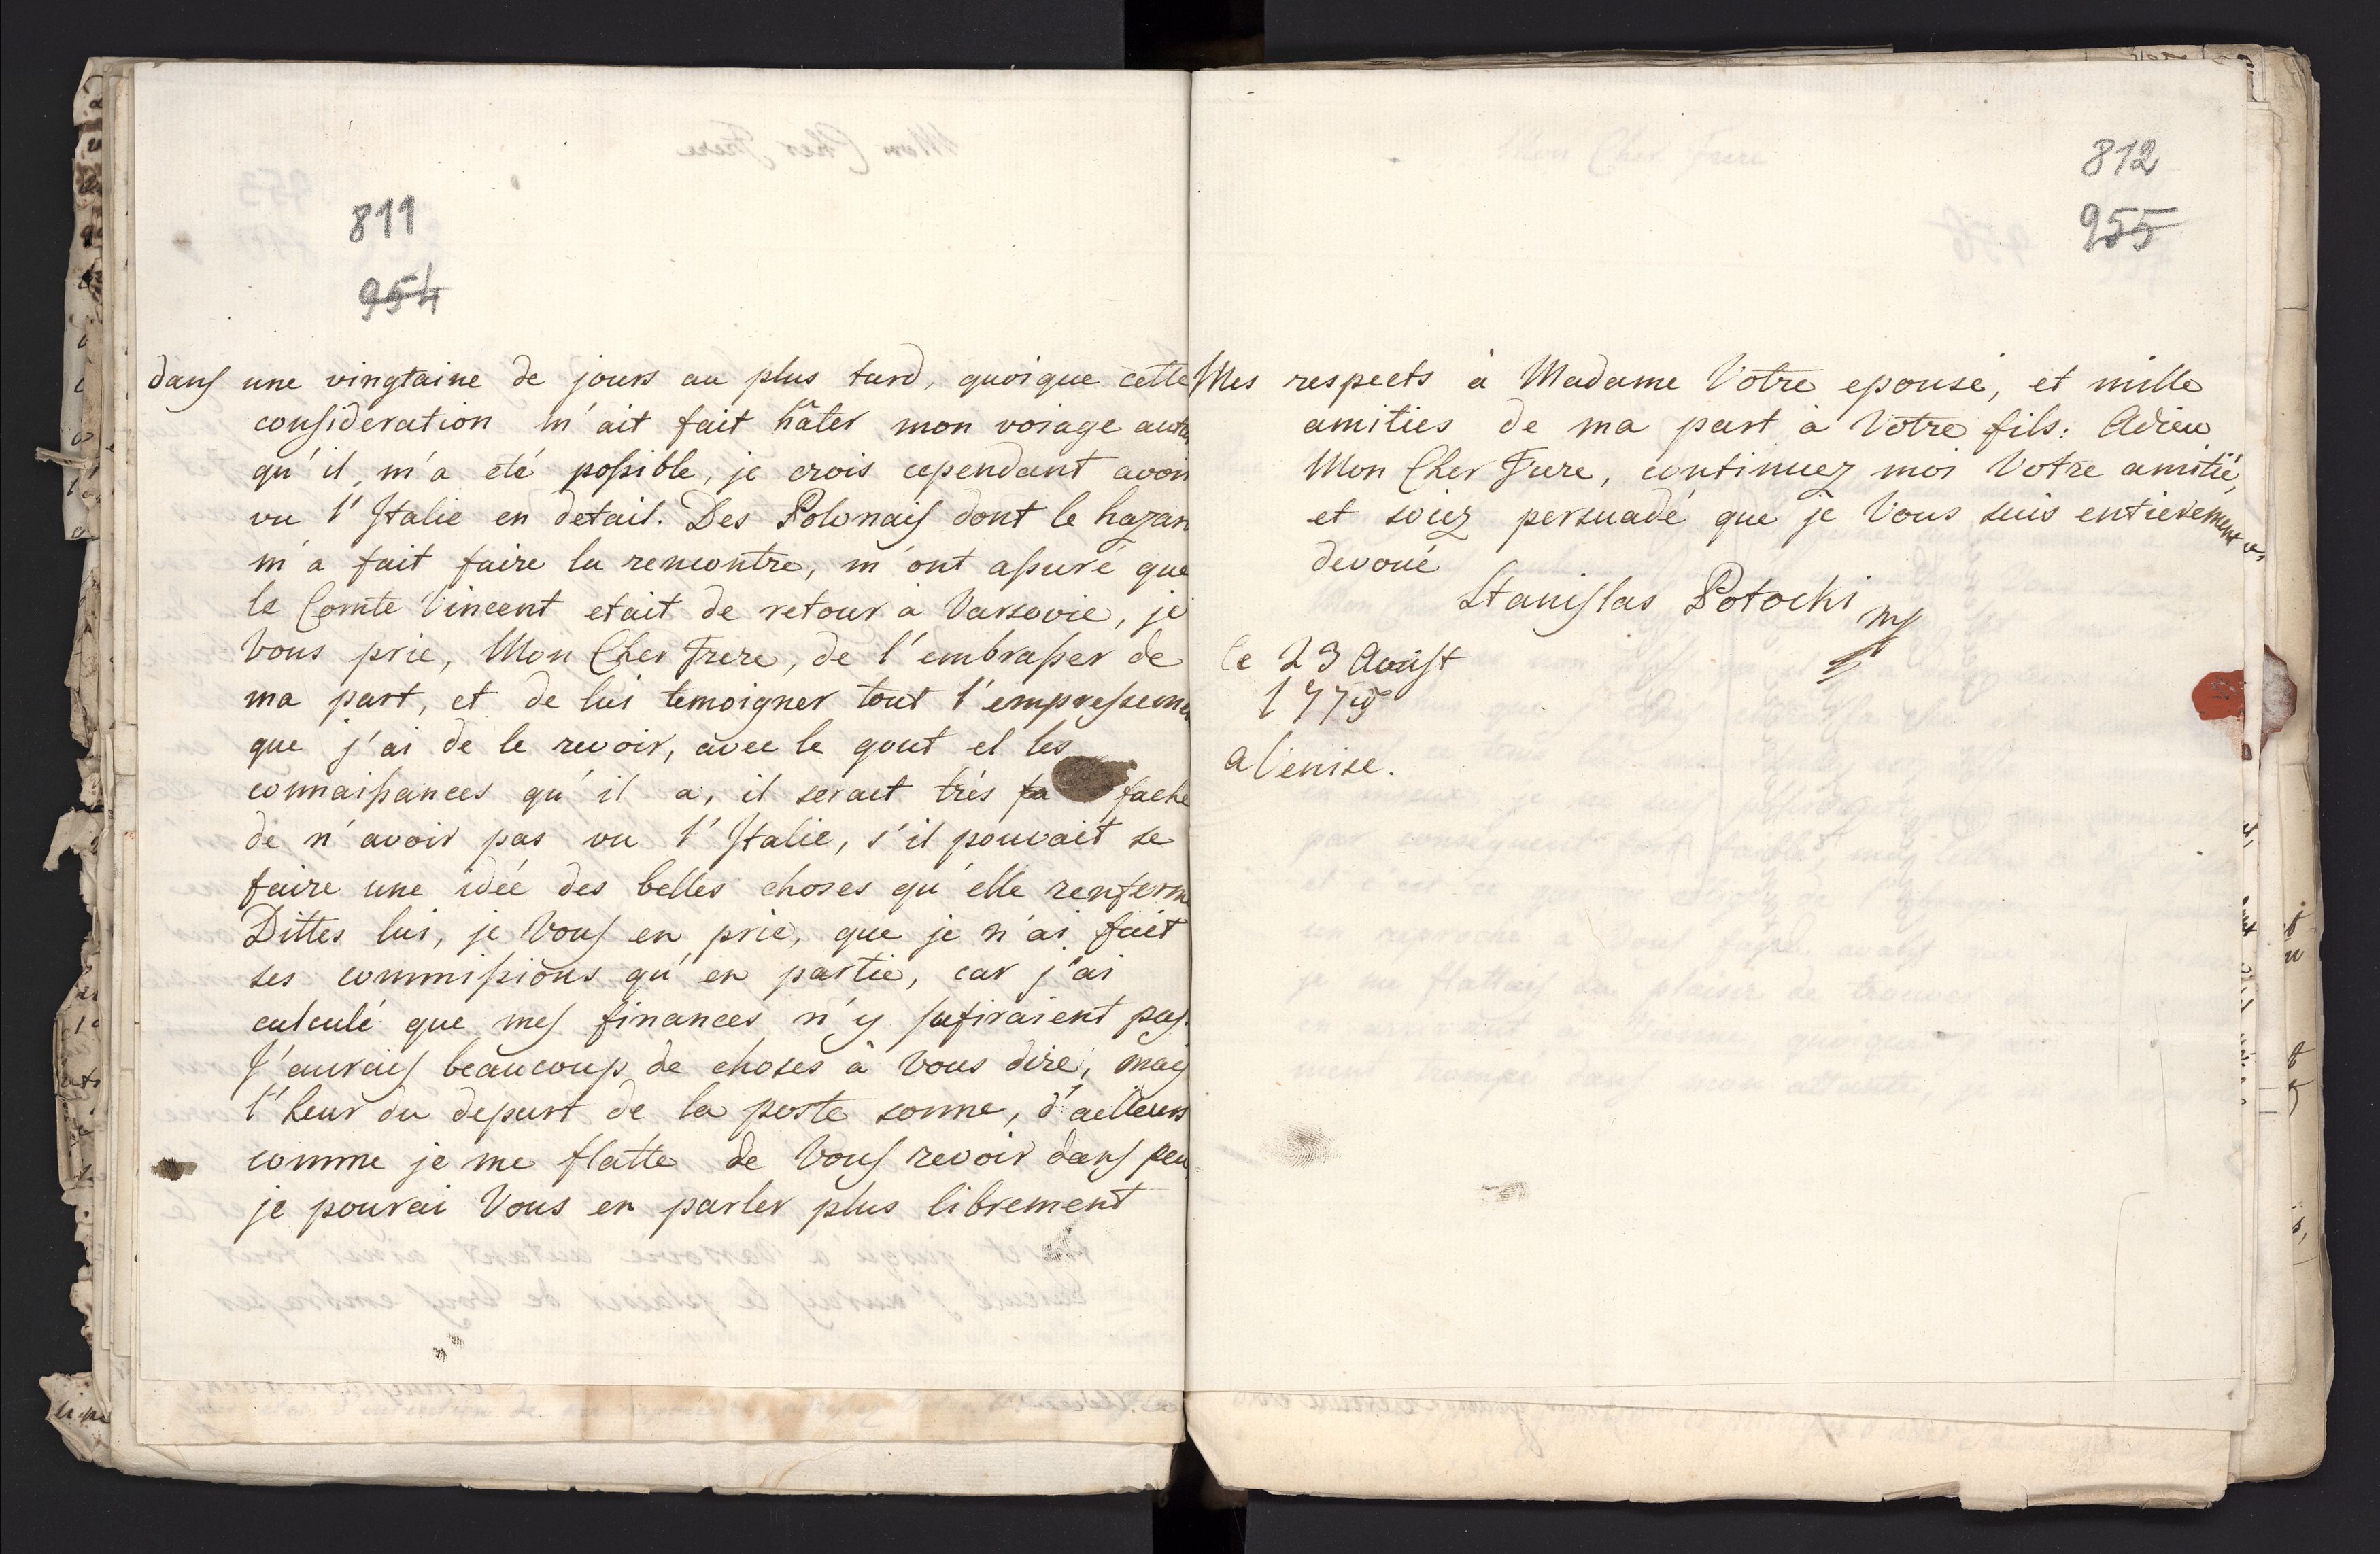 811
954
dans une vingtaine de jours au plus tard, quoique cette
consideration m'ait fait hâter mon voiage autan
qu'il m'a eté possible, je crois cependant avoir
vu l'Italie en detail. Des Polonais dont le hazar
m'a fait faire la rencontre, m'ont assuré que
le Comte Vincent etait de retour a Varsovie, je
Vous prie, Mon Cher Frere, de l'embrasser de
ma part, et de lui temoigner tout l'empresseme
que j'ai de le revoir, avec le gout et les
connaissances qu'il a, il serait trés fa faché
de n'avoir pas vu l'Italie, s'il pouvait se
faire une idée des belles choses qu'elle renferme
Dittes lui, je Vous en prie, que je n'ai fait
ses commissions qu'en partie, car j'ai
calculé que mes finances n'y sufiraient pas.
J'aurais beaucoup de choses à Vous dire, mais
l'heur du depart de la poste sonne, d'ailleurs
comme je me flatte de Vous revoir dans peu
je pourai Vous en parler plus librement
812
955
Mes respects à Madame Votre epouse, et mille
amities de ma part à Votre fils: Adieu
Mon Cher Frere, continuez moi Votre amitié,
et soiez persuadé que je Vous suis entierement
devoué
Stanislas Potocki
le 23 Aoust
1779
a Venise.